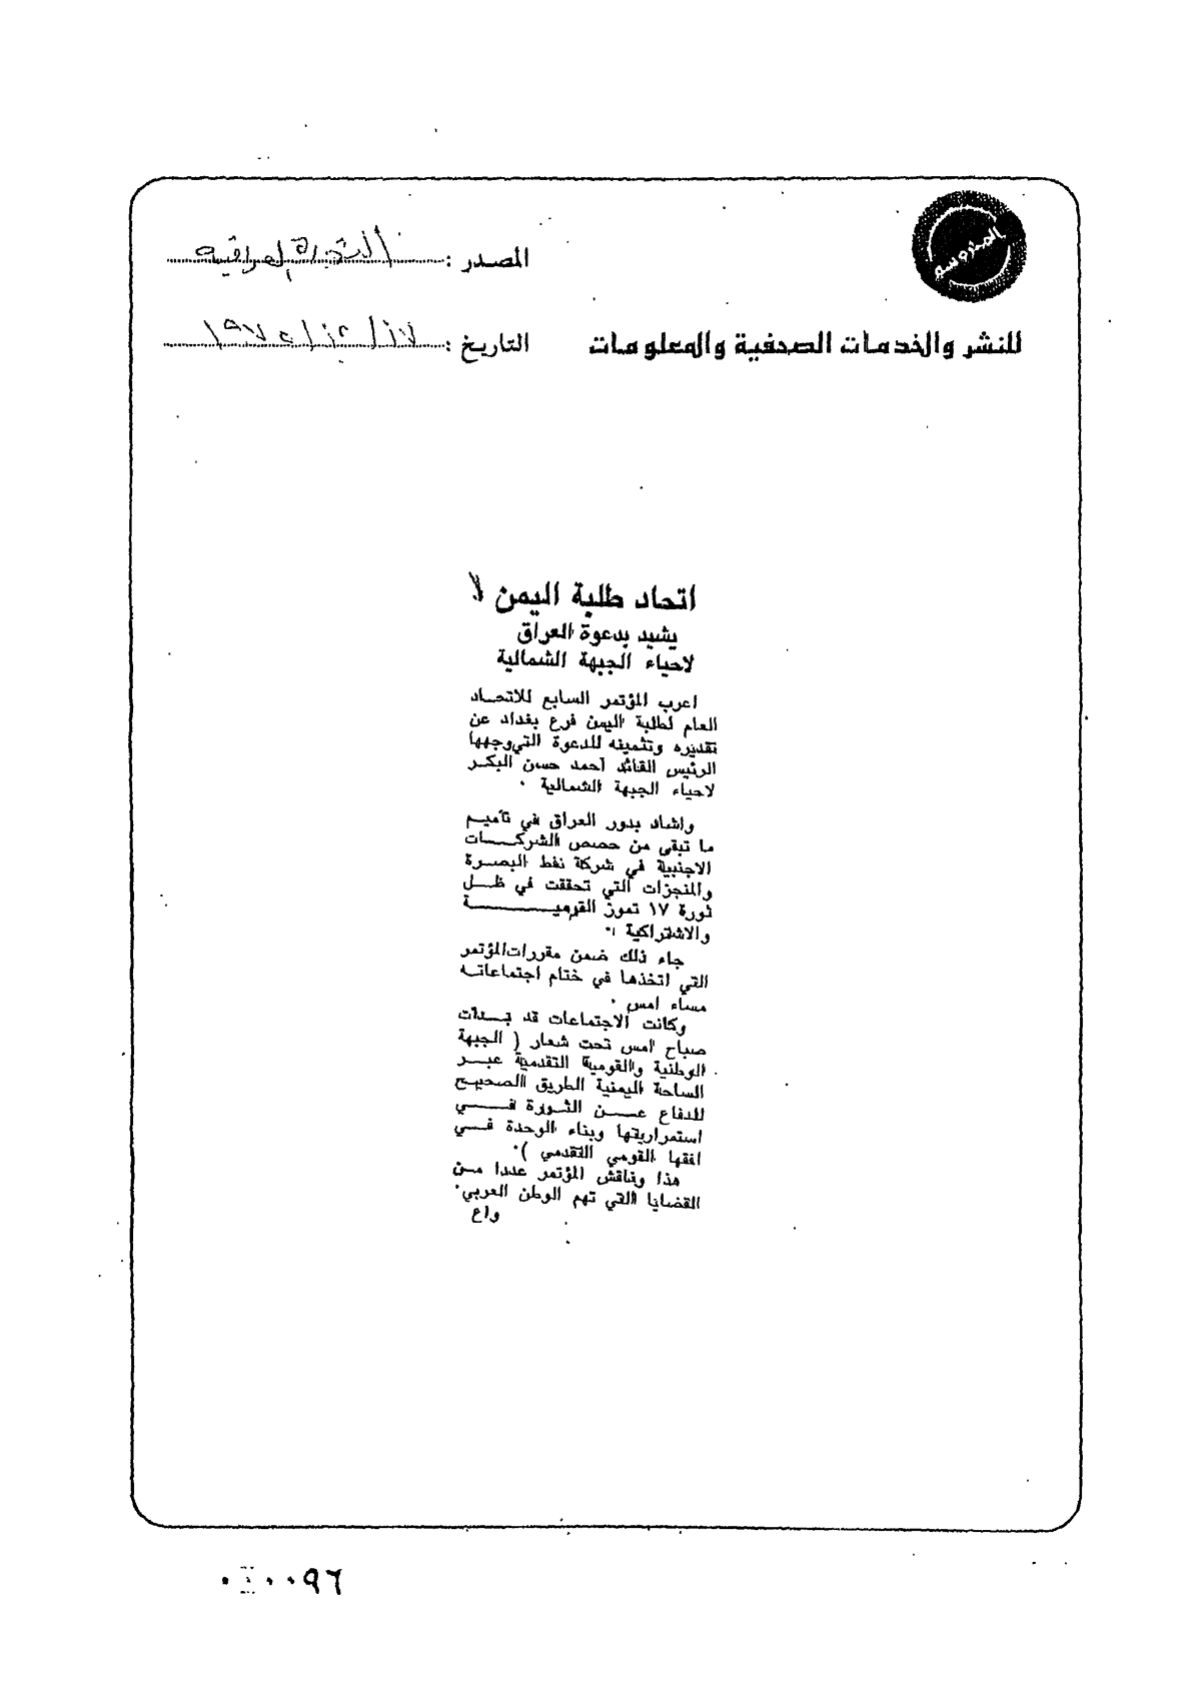 المحروسة
المصدر : الثورة العراقية
للنشر والخدمات الصحفية والمعلومات
التاريخ : ١٧ / ١٢ / ١٩٧٥
اتحاد طلبة اليمن
يشيد بدعوة العراق
لاحياء الجبهة الشمالية
اعرب المؤتمر السابع للاتحاد
العام لطلبة اليمن فرع بغداد عن
تقديره وتثمينه للدعوة التي وجهها
الرئيس القائد احمد حسن البكر
لاحياء الجبهة الشمالية .
واشاد بدور العراق في تأميم
ما تبقى من حصص الشركات
الاجنبية في شركة نفط البصرة
والمنجزات التي تحققت في ظل
ثورة ١٧ تموز القومية
والاشتراكية .
جاء ذلك ضمن مقررات المؤتمر
التي اتخذها في ختام اجتماعاته
مساء امس .
وكانت الاجتماعات قد بدأت
صباح امس تحت شعار ( الجبهة
الوطنية والقومية التقدمية عبر
الساحة اليمنية الطريق الصحيح
للدفاع عن الثورة في
استمراريتها وبناء الوحدة في
افقها القومي التقدمي ).
هذا وناقش المؤتمر عددا من
القضايا التي تهم الوطن العربي.
واع
٠٠٩٦